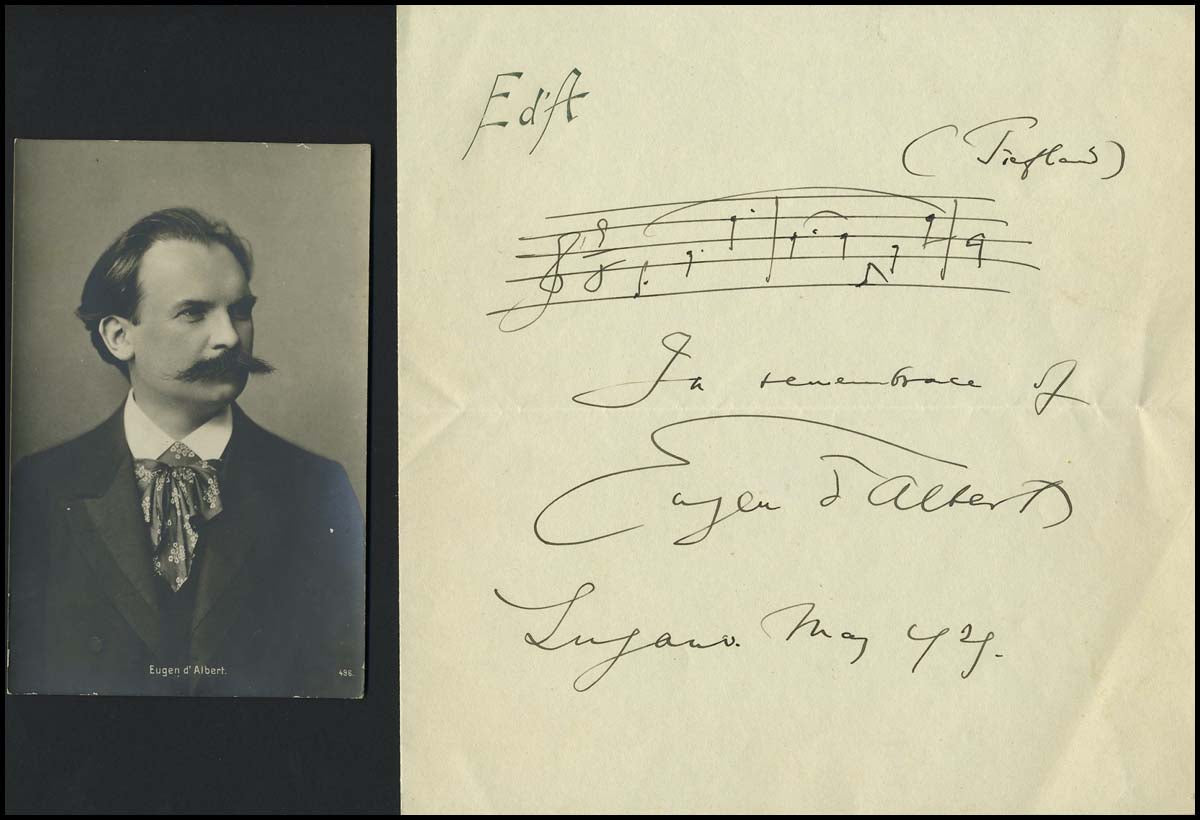 Eugen d' Albert.
496.
E d'A
(Tiefland)
In remembrace of
Eugen d'Albert
Lugano. May 4/29.